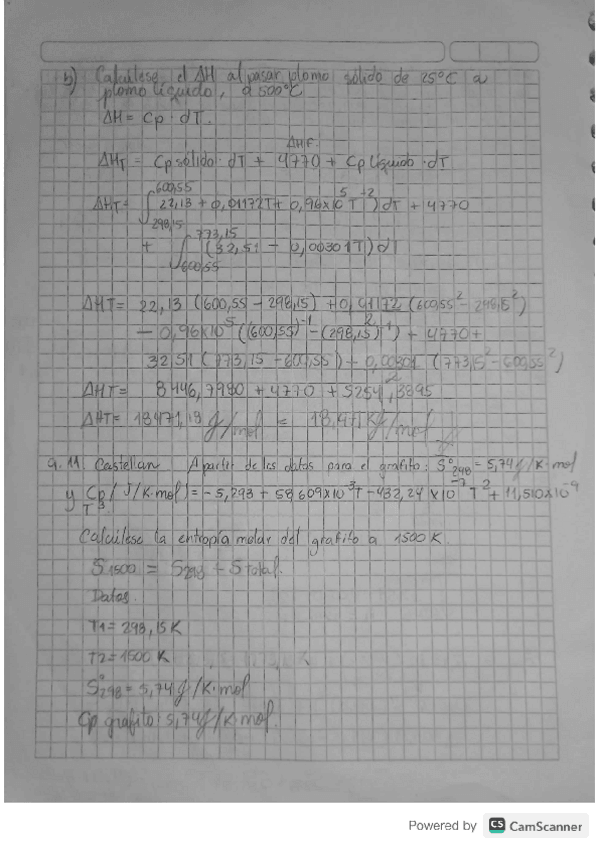 b) Calcúlese el ΔH al pasar plomo sólido de 25°C a
plomo líquido, a 500°C
ΔH = Cp · dT.
ΔHf.
ΔHT = Cp sólido · dT + 4770 + Cp líquido · dT
ΔHT = ∫ 298,15 600,55 (22,13 + 0,01172T + 0,96x10^5 T^-2) dT + 4770
+ ∫ 600,55 773,15 (32,51 - 0,00301T) dT
ΔHT = 22,13 (600,55 - 298,15) + 0,01172/2 (600,55² - 298,15²)
- 0,96x10^5 ((600,55)^-1 - (298,15)^-1) + 4770 +
32,51 (773,15 - 600,55) - 0,00301/2 (773,15² - 600,55²)
ΔHT = 8446,7980 + 4770 + 5254,3895
ΔHT = 18471,19 J/mol = 18,471 KJ/mol
9.11. Castellan A partir de los datos para el grafito: S°298 = 5,74 J/K·mol
y Cp/(J/K·mol) = -5,293 + 58,609x10^-3T - 432,24 x10^-7 T² + 11,510x10^-9
T³
Calcúlese la entropía molar del grafito a 1500 K.
S1500 = S298 + S total.
Datos.
T1 = 298,15 K
T2 = 1500 K
S°298 = 5,74 J/K·mol
Cp grafito: 5,74 J/K·mol.
Powered by CS CamScanner